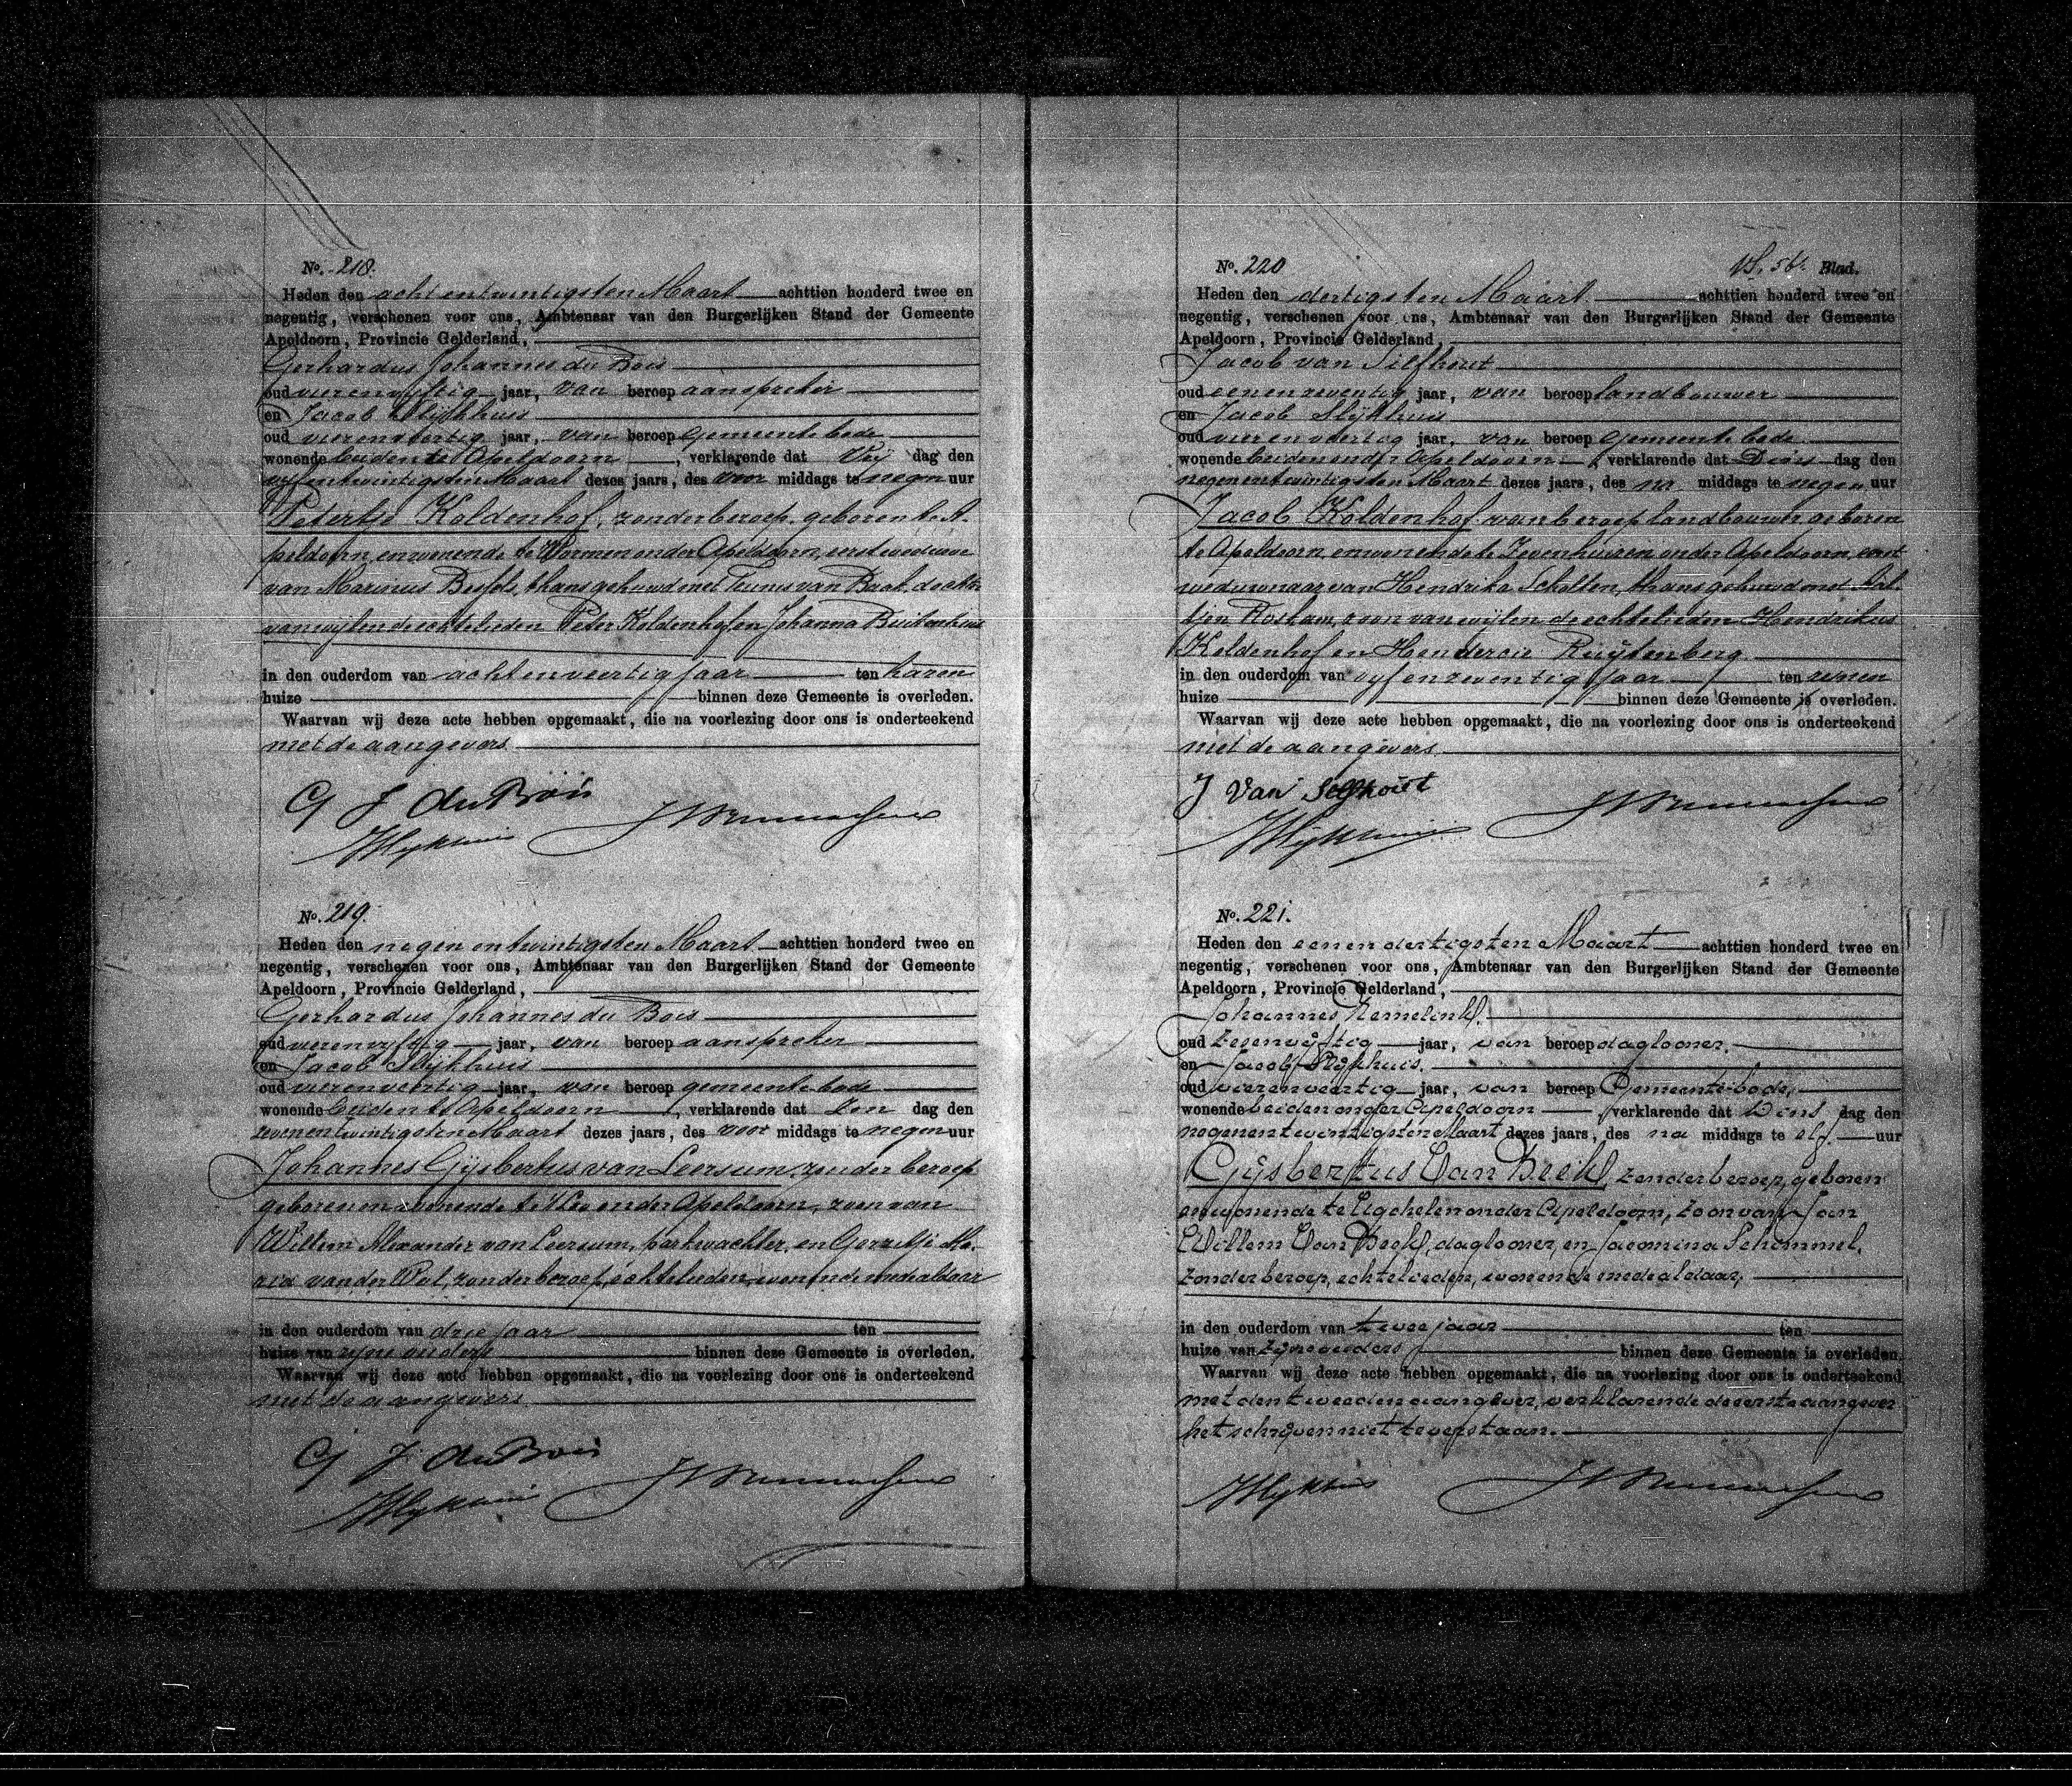 No. 218.
Heden den acht en twintigsten Maart achttien honderd twee en
negentig, verschenen voor ons, Ambtenaar van den Burgerlijken Stand der Gemeente
Apeldoorn, Provincie Gelderland,
Gerhardus Johannes du Bois
oud vierenvyftig jaar, van beroep aanspreker
en Jacob Slijkhuis
oud vierenveertig jaar, van beroep Gemeente bode
wonende beiden te Apeldoorn, verklarende dat Vrij dag den
vyfentwintigsten Maart dezes jaars, des voor middags te negen uur
Petertje Koldenhof, zonder beroep, geboren te A-
peldoorn en wonende te Wormen onder Apeldoorn, eerst weduwe
van Marinus , thans gehuwd met Teunis van Baak, dochter
van wijlen de echtelieden Peter Koldenhof en Johanna Buitenhuis
in den ouderdom van acht en veertig jaar ten haren
huize binnen deze Gemeente is overleden.
Waarvan wij deze acte hebben opgemaakt, die na voorlezing door ons is onderteekend
met de aangevers
G J du Bois
JSlijkhuis
No. 219.
Heden den negen en twintigsten Maart achttien honderd twee en
negentig, verschenen voor ons, Ambtenaar van den Burgerlijken Stand der Gemeente
Apeldoorn, Provincie Gelderland,
Gerhardus Johannes du Bois
oud vierenvyftig jaar, van beroep aanspreker
en Jacob Slijkhuis
oud vierenveertig jaar, van beroep gemeente bode
wonende beiden te Apeldoorn, verklarende dat Zon dag den
zevenentwintigsten Maart dezes jaars, des voor middags te negen uur
Johannes Gijsbertus van Leersum, zonder beroep
geboren en wonende te 't Loo onder Apeldoorn, zoon van
Willem Alexander van Leersum, parkwachter, en Gerritje Ma-
ria van der Pol, zonder beroep, echtelieden, wonende mede aldaar
in den ouderdom van drie jaar ten
huize van zyne ouders binnen deze Gemeente is overleden.
Waarvan wij deze acte hebben opgemaakt, die na voorlezing door ons is onderteekend
met de aangevers
G J du Bois
JSlijkhuis
No. 220 56. Blad.
Heden den dertigsten Maart achttien honderd twee en
negentig, verschenen voor ons, Ambtenaar van den Burgerlijken Stand der Gemeente
Apeldoorn, Provincie Gelderland,
Jacob van Silfhout
oud eenenzeventig jaar, van beroep landbouwer
en Jacob Slijkhuis
oud vierenveertig jaar, van beroep Gemeente bode
wonende beiden onder Apeldoorn, verklarende dat Dins dag den
negenentwintigsten Maart dezes jaars, des na middags te negen uur
Jacob Koldenhof van beroep landbouwer, geboren
te Apeldoorn en wonende te Zevenhuizen onder Apeldoorn, eerst
weduwnaar van Hendrika Scholten, thans gehuwd met
Roskam, zoon van wijlen de echtelieden Hendrikus
Koldenhof en Hendersie Ruijtenberg
in den ouderdom van vyf en zeventig jaar ten zynen
huize binnen deze Gemeente is overleden.
Waarvan wij deze acte hebben opgemaakt, die na voorlezing door ons is onderteekend
met de aangevers
J Van Silfhout
JSlijkhuis
No. 221.
Heden den eenen dertigsten Maart achttien honderd twee en
negentig, verschenen voor ons, Ambtenaar van den Burgerlijken Stand der Gemeente
Apeldoorn, Provincie Gelderland,
Johannes Hemelink.
oud zesenvijftig jaar, van beroep daglooner,
en Jacob Slijkhuis.
oud vierenveertig jaar, van beroep Gemeente-bode,
wonende beiden onder Apeldoorn, verklarende dat Dins dag den
negenentwintigsten Maart dezes jaars, des na middags te elf uur
Gijsbertus Van Beek, zonder beroep, geboren
en wonende te Ugchelen onder Apeldoorn, zoon van Jan
Willem Van Beek, daglooner, en Jacomina Schimmel,
zonder beroep, echtelieden, wonende mede aldaar,
in den ouderdom van twee jaar ten
huize van zijne ouders binnen deze Gemeente is overleden.
Waarvan wij deze acte hebben opgemaakt, die na voorlezing door ons is onderteekend
met den tweeden aangever, verklarende de eerste aangever
het schrijven niet te verstaan.
JSlijkhuis